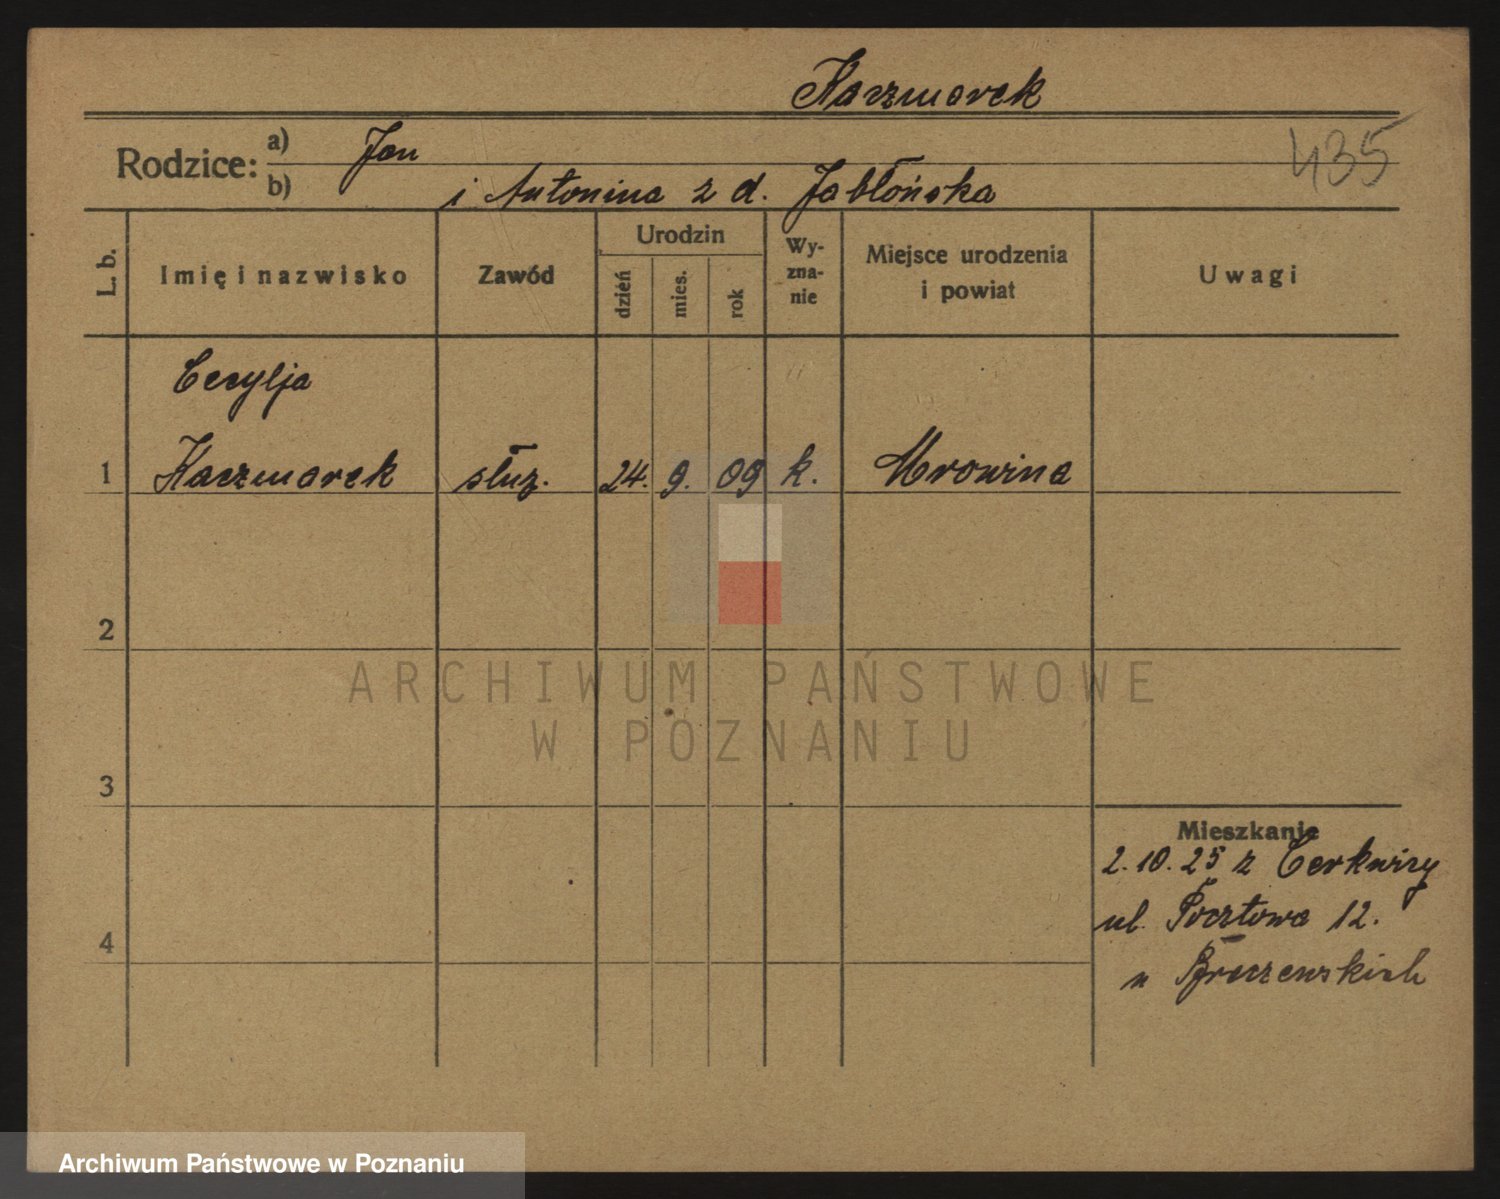 Kaczmarek
Rodzice: a) Jan
435
b) i Antonina z d. Jabłońska
L. b.
Imię i nazwisko
Zawód
Urodzin
dzień
mies.
rok
Wy-
zna-
nie
Miejsce urodzenia
i powiat
Uwagi
Cecylja
1 Kaczmarek służ. 24. 9. 09 k. Mrowina
2
ARCHIWUM PAŃSTWOWE
W POZNANIU
3
Mieszkanie
2.10.25 z Cerkwicy
ul. Pocztowa 12.
4
u
Archiwum Państwowe w Poznaniu